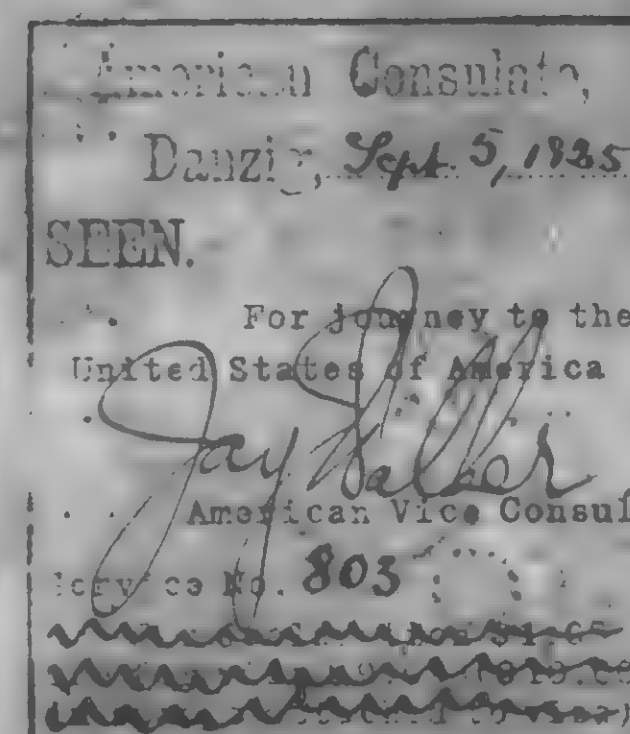 American Consulate,
Danzig, Sept. 5, 1925
SEEN.
For journey to the
United States of America
Jay Walker
American Vice Consul
Service No. 803